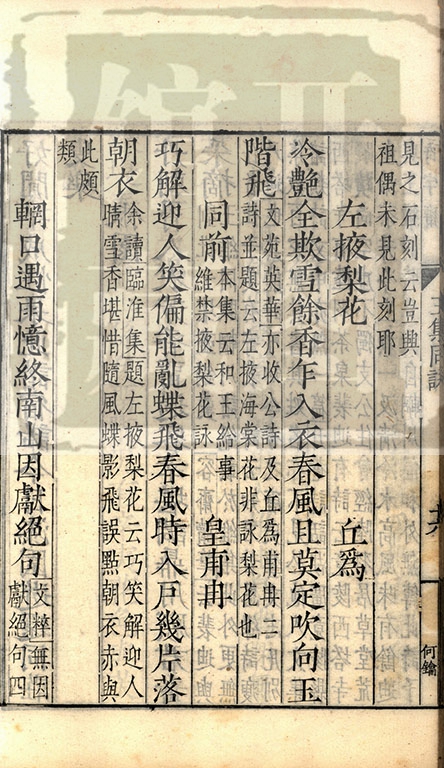 見之石刻云豈與
祖偶未見此刻耶
左掖梨花
丘為
冷艷全欺雪餘香乍入衣春風且莫定吹向玉
階飛
文苑英華亦收公詩及丘為甫冉二
詩並題云左掖海棠花非詠梨花也
同前
本集云和王給事
維禁掖梨花詠
皇甫冉
巧解迎人笑偏能亂蝶飛春風時入戶幾片落
朝衣
余讀臨淮集題左掖梨花云巧笑解迎人
晴雪香堪惜隨風蝶影飛誤點朝衣赤與
此頗
類
輞口遇雨憶終南山因獻絕句
文粹無因
獻絕句四
何鑰